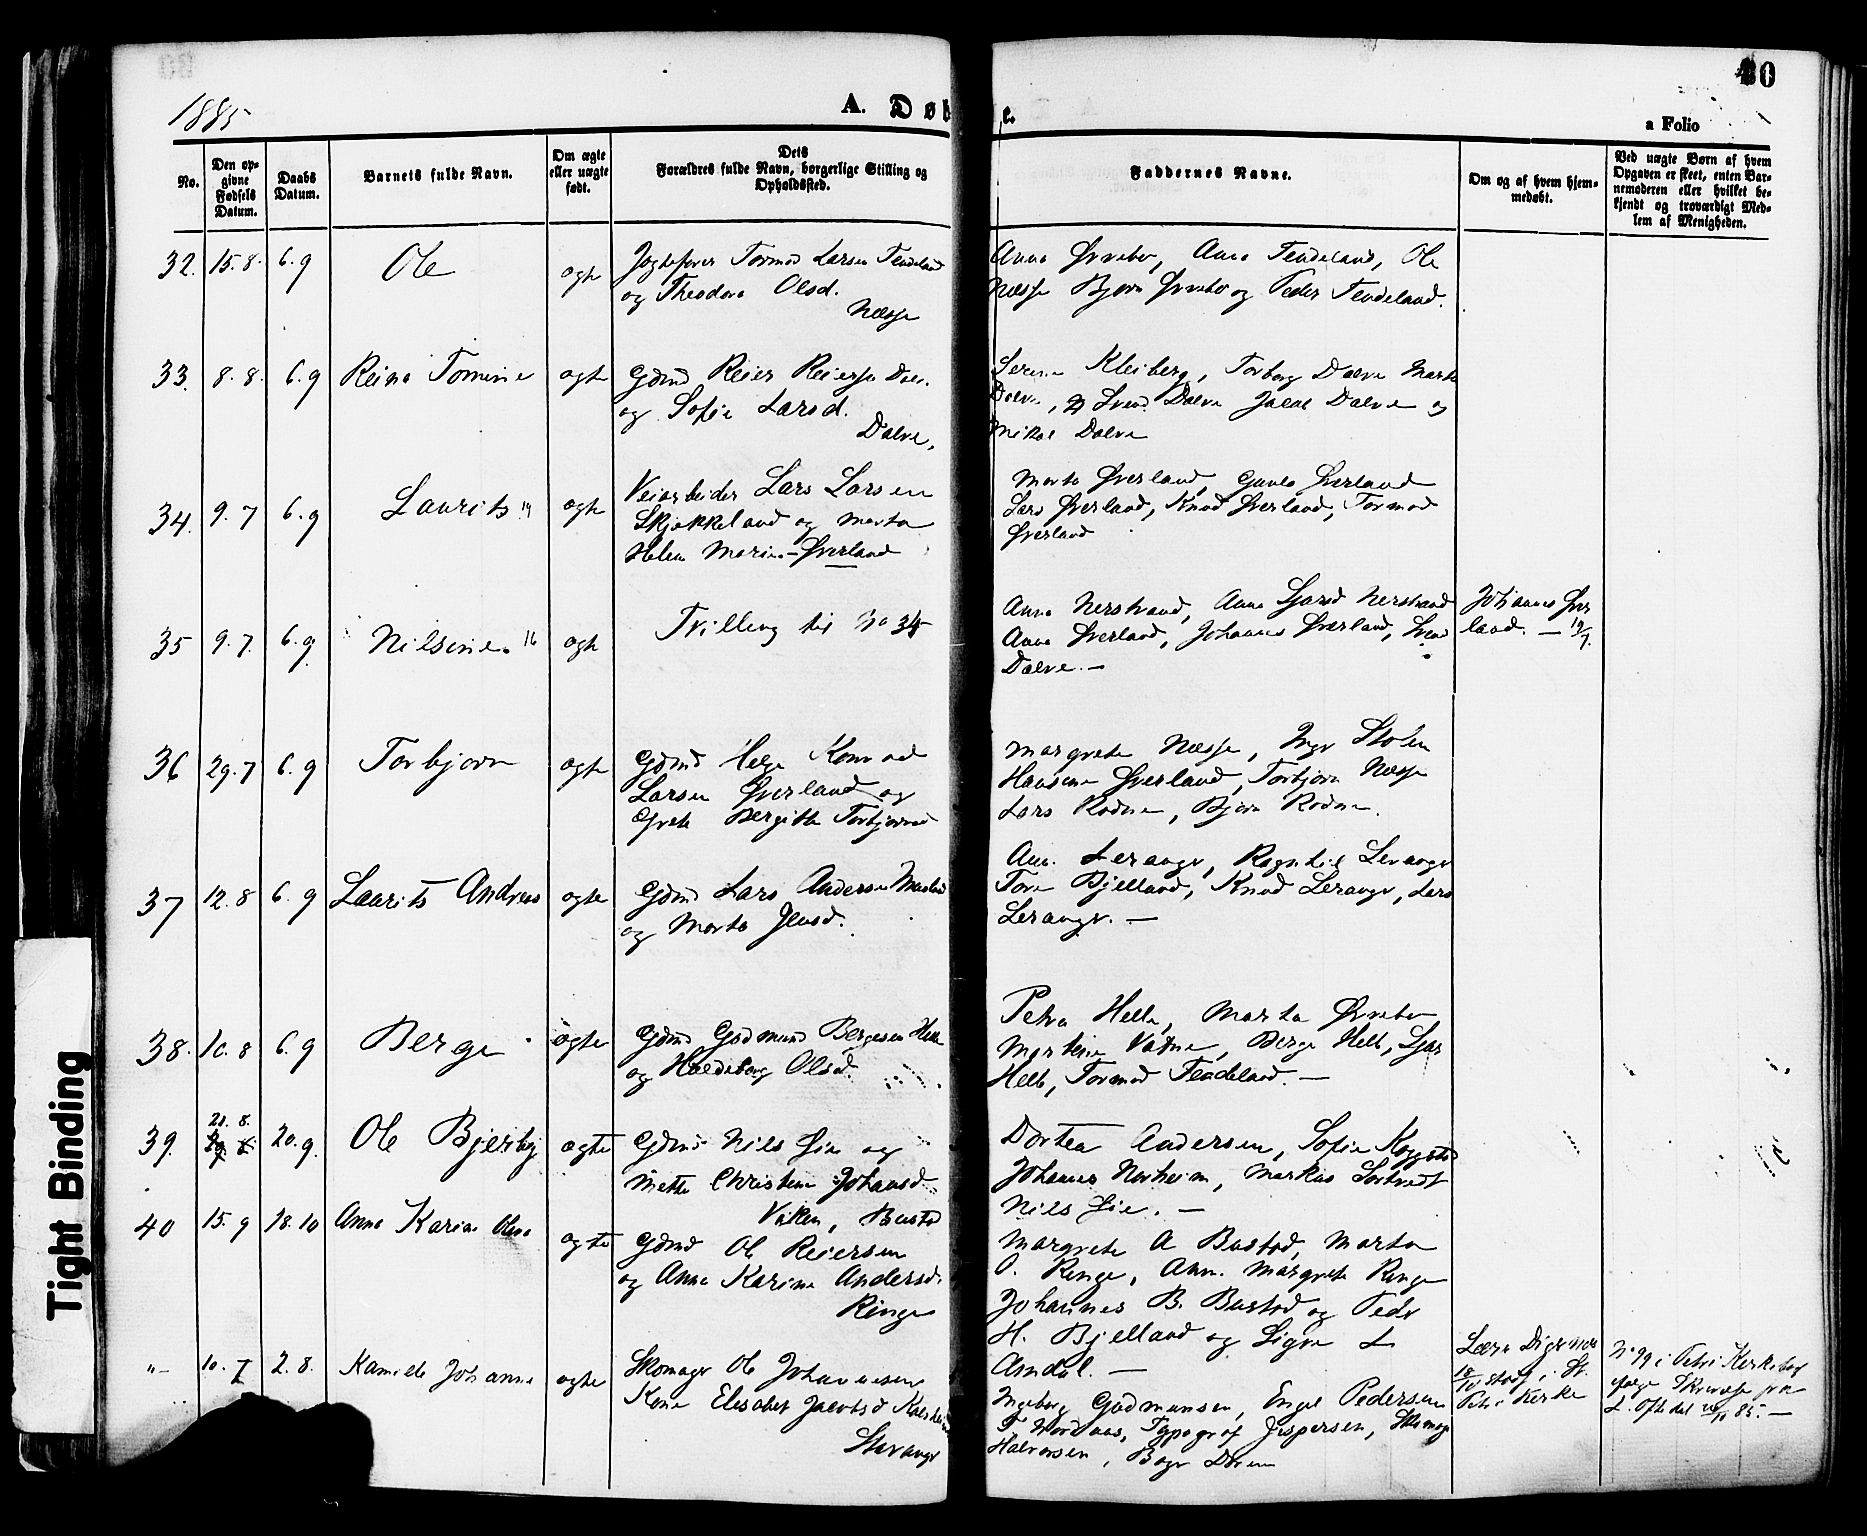 1885
A. Døb
e.
30
a Folio
No.
Den op-
givne
Fødsels
Datum.
Daabs
Datum.
Barnets fulde Navn.
Om ægte
eller uægte
født.
Dets
Forældres fulde Navn, borgerlige Stilling og
Opholdssted.
Faddernes Navne.
Om og af hvem hjem-
medøbt.
Ved uægte Børn af hvem
Opgaven er skeet, enten Bar-
nemoderen eller hvilket be-
kjendt og troværdigt Med-
lem af Menigheden.
32. 15. 8. 6. 9 Ole ægte
Tormod Larsen Tendeland
og Theodora Olsd.
Næsse
Anna Ørrebø, Anna Tendeland, Ole
Næsse Bjørn Ørrebø og Peder Tendeland.
33. 8. 8. 6. 9 Reina Tomine ægte
Gdmd Reier Reiers
og Sofie Larsd.
Dalve.
Serine Kleiberg, Torborg Dalve Marta
Dalve, Svend Dalve Jacob Dalve og
Mikal Dalve
34. 9. 7 6. 9 Laurits ægte
Veiarbeider Lars Larsen
Skjekkeland og Marta
Helene Marie - Øverland
Marta Øverland, Gunla Øverland
Lars Øverland, Knud Øverland, Tormod
Øverland
35 9. 7. 6. 9 Nilsine. 16 ægte
Tvilling til No 34
Anna Nerstrand, Anna Nerstrand
Anna Øverland, Johannes Øverland, Svend
Dalve. -
Johannes Øver
land. - 19/7.
36 29. 7 6. 9 Torbjørn ægte
Gdmd Helge Konrad
Larsen Øverland og
Grete Bergitte Torbjørnsd
Margrete Næsse, Stølen
Hansine Øverland, Torbjørn Næsse
Lars Rødne, Bjørn Rødne.
37 12. 8 6. 9 Laurits Andreas ægte
Gdmd Lars Andersen
og Marta Jensd.
Lerange, Ragnhil Lerange
Tore Bjelland, Knud Lerange, Lars
Lerange. -
38. 10. 8 6. 9 Berge ægte
Gdmd Godmund Bergesen Helle
og Olsd.
Petra Helle, Marta Ørrebø
Martine Vatne, Berge Helle,
Helle, Tormod Tendeland. -
39. 21. 8. 20. 9. Ole ægte
Gdmd Nils og
Mette Christine Johansd
Viken, Bustad
Dortea Andersen, Sofie
Johannes Norheim, Markus
Nils -
40 15. 9 18. 10 Anna Karine ægte
Gdmd Ole Reiersen
og Anna Karine Andersd.
Ringe
Margrete A Bustad, Marta
O. Ringe, Anna Margrete Ringe
Johannes B. Bustad og Peder
H. Bjelland og Signe L
Amdal. -
"- 10. 7 2. 8. Kamilla Johanna ægte
Skomager Ole Johannesen
Kone Elisabet Jacobsd
Stavanger
Ingeborg Godmunsen, Engel Pedersen
T. Nordaas, Typograf Jespersen, Skomager
Halvorsen,
Petri Kirke
No 99 i Petri Kirkebog
85. -
Tight Binding